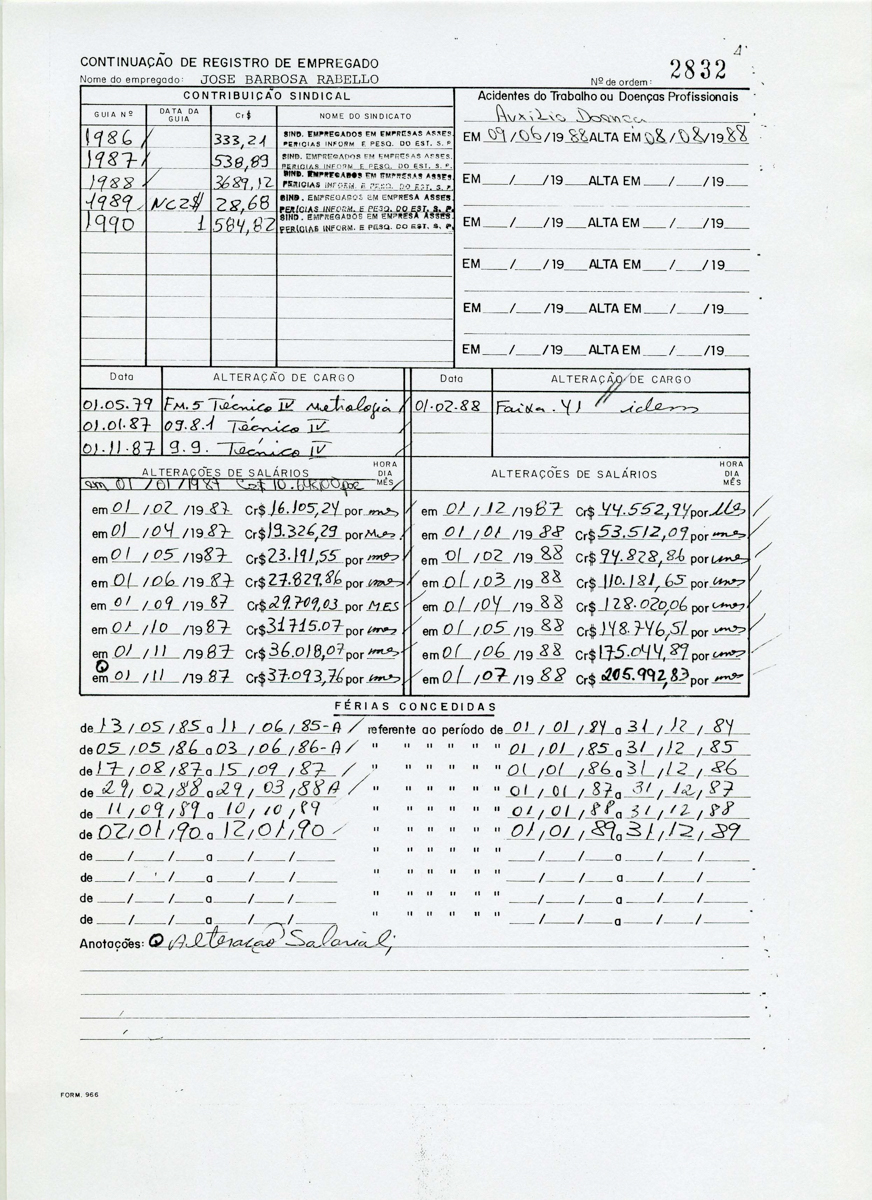 4
CONTINUAÇÃO DE REGISTRO DE EMPREGADO
Nome do empregado: JOSE BARBOSA RABELLO Nº de ordem: 2832
CONTRIBUIÇÃO SINDICAL
GUIA Nº DATA DA GUIA Cr$ NOME DO SINDICATO
1986 333,21 SIND. EMPREGADOS EM EMPRESAS ASSES. PERICIAS INFORM. E PESQ. DO EST. S. P.
1987 538,89 SIND. EMPREGADOS EM EMPRESAS ASSES. PERICIAS INFORM. E PESQ. DO EST. S. P.
1988 3689,12 SIND. EMPREGADOS EM EMPRESAS ASSES. PERICIAS INFORM. E PESQ. DO EST. S. P.
1989 NCZ$ 28,68 SIND. EMPREGADOS EM EMPRESA ASSES. PERÍCIAS INFORM. E PESQ. DO EST. S. P.
1990 1 584,82 SIND. EMPREGADOS EM EMPRESA ASSES. PERÍCIAS INFORM. E PESQ. DO EST. S. P.
Acidentes do Trabalho ou Doenças Profissionais
Auxilio Doença
EM 09/06/1988 ALTA EM 08/08/1988
EM / /19 ALTA EM / /19
EM / /19 ALTA EM / /19
EM / /19 ALTA EM / /19
EM / /19 ALTA EM / /19
EM / /19 ALTA EM / /19
Data ALTERAÇÃO DE CARGO
01.05.79 FM.5 Técnico IV Metrologia
01.01.87 09.8.1 Técnico IV
01.11.87 9.9. Técnico IV
Data ALTERAÇÃO DE CARGO
01.02.88 Faixa. 41 idem
ALTERAÇÕES DE SALÁRIOS HORA DIA MÊS
em 01/01/1987
em 01/02/1987 Cr$ 16.105,24 por mes
em 01/04/1987 Cr$ 19.326,29 por Mes
em 01/05/1987 Cr$ 23.191,55 por mes
em 01/06/1987 Cr$ 27.829,86 por mes
em 01/09/1987 Cr$ 29.709,03 por MES
em 01/10/1987 Cr$ 31715.07 por mes
em 01/11/1987 Cr$ 36.018,07 por mes
em 01/11/1987 Cr$ 37.093,76 por mes
ALTERAÇÕES DE SALÁRIOS HORA DIA MÊS
em 01/12/1987 Cr$ 44.552,94 por Mes
em 01/01/1988 Cr$ 53.512,09 por mes
em 01/02/1988 Cr$ 94.828,86 por mes
em 01/03/1988 Cr$ 110.181,65 por mes
em 01/04/1988 Cr$ 128.020,06 por mes
em 01/05/1988 Cr$ 148.746,51 por mes
em 01/06/1988 Cr$ 175.044,89 por mes
em 01/07/1988 Cr$ 205.992,83 por mes
FÉRIAS CONCEDIDAS
de 13/05/85 a 11/06/85-A referente ao período de 01/01/84 a 31/12/84
de 05/05/86 a 03/06/86-A " " " " " " 01/01/85 a 31/12/85
de 17/08/87 a 15/09/87 " " " " " " 01/01/86 a 31/12/86
de 29/02/88 a 29/03/88A " " " " " " 01/01/87 a 31/12/87
de 11/09/89 a 10/10/89 " " " " " " 01/01/88 a 31/12/88
de 02/01/90 a 12/01/90 " " " " " " 01/01/89 a 31/12/89
de / / a / / " " " " " " / / a / /
de / / a / / " " " " " " / / a / /
de / / a / / " " " " " " / / a / /
de / / a / / " " " " " " / / a / /
Anotações: Alteração Salarial;
FORM. 966